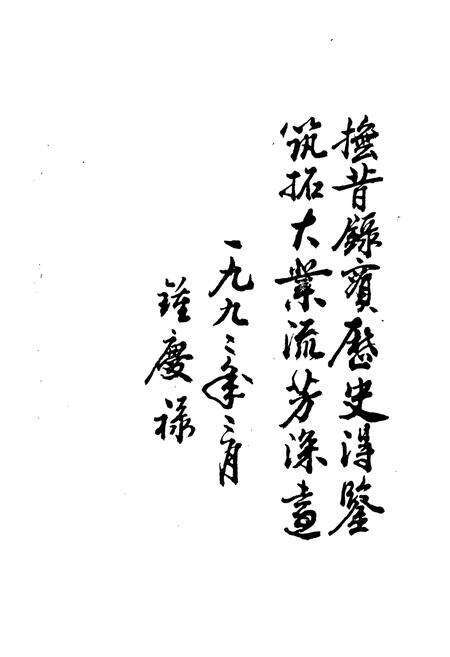 撫昔錄實歷史得鑒
筑拓大業流芳深遠
一九九二年二月
鍾慶祿